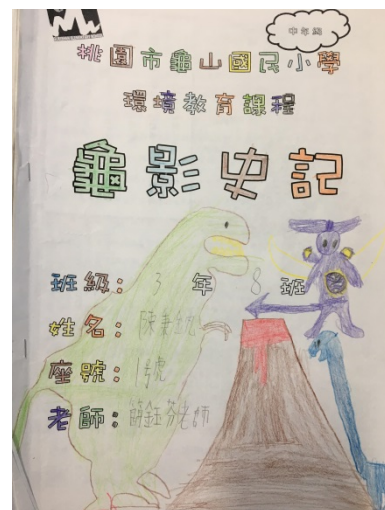 中年級
桃園市龜山國民小學
環境教育課程
龜影史記
班級：3年8班
姓名：陳
座號：1号虎
老師：簡鈺芬老師